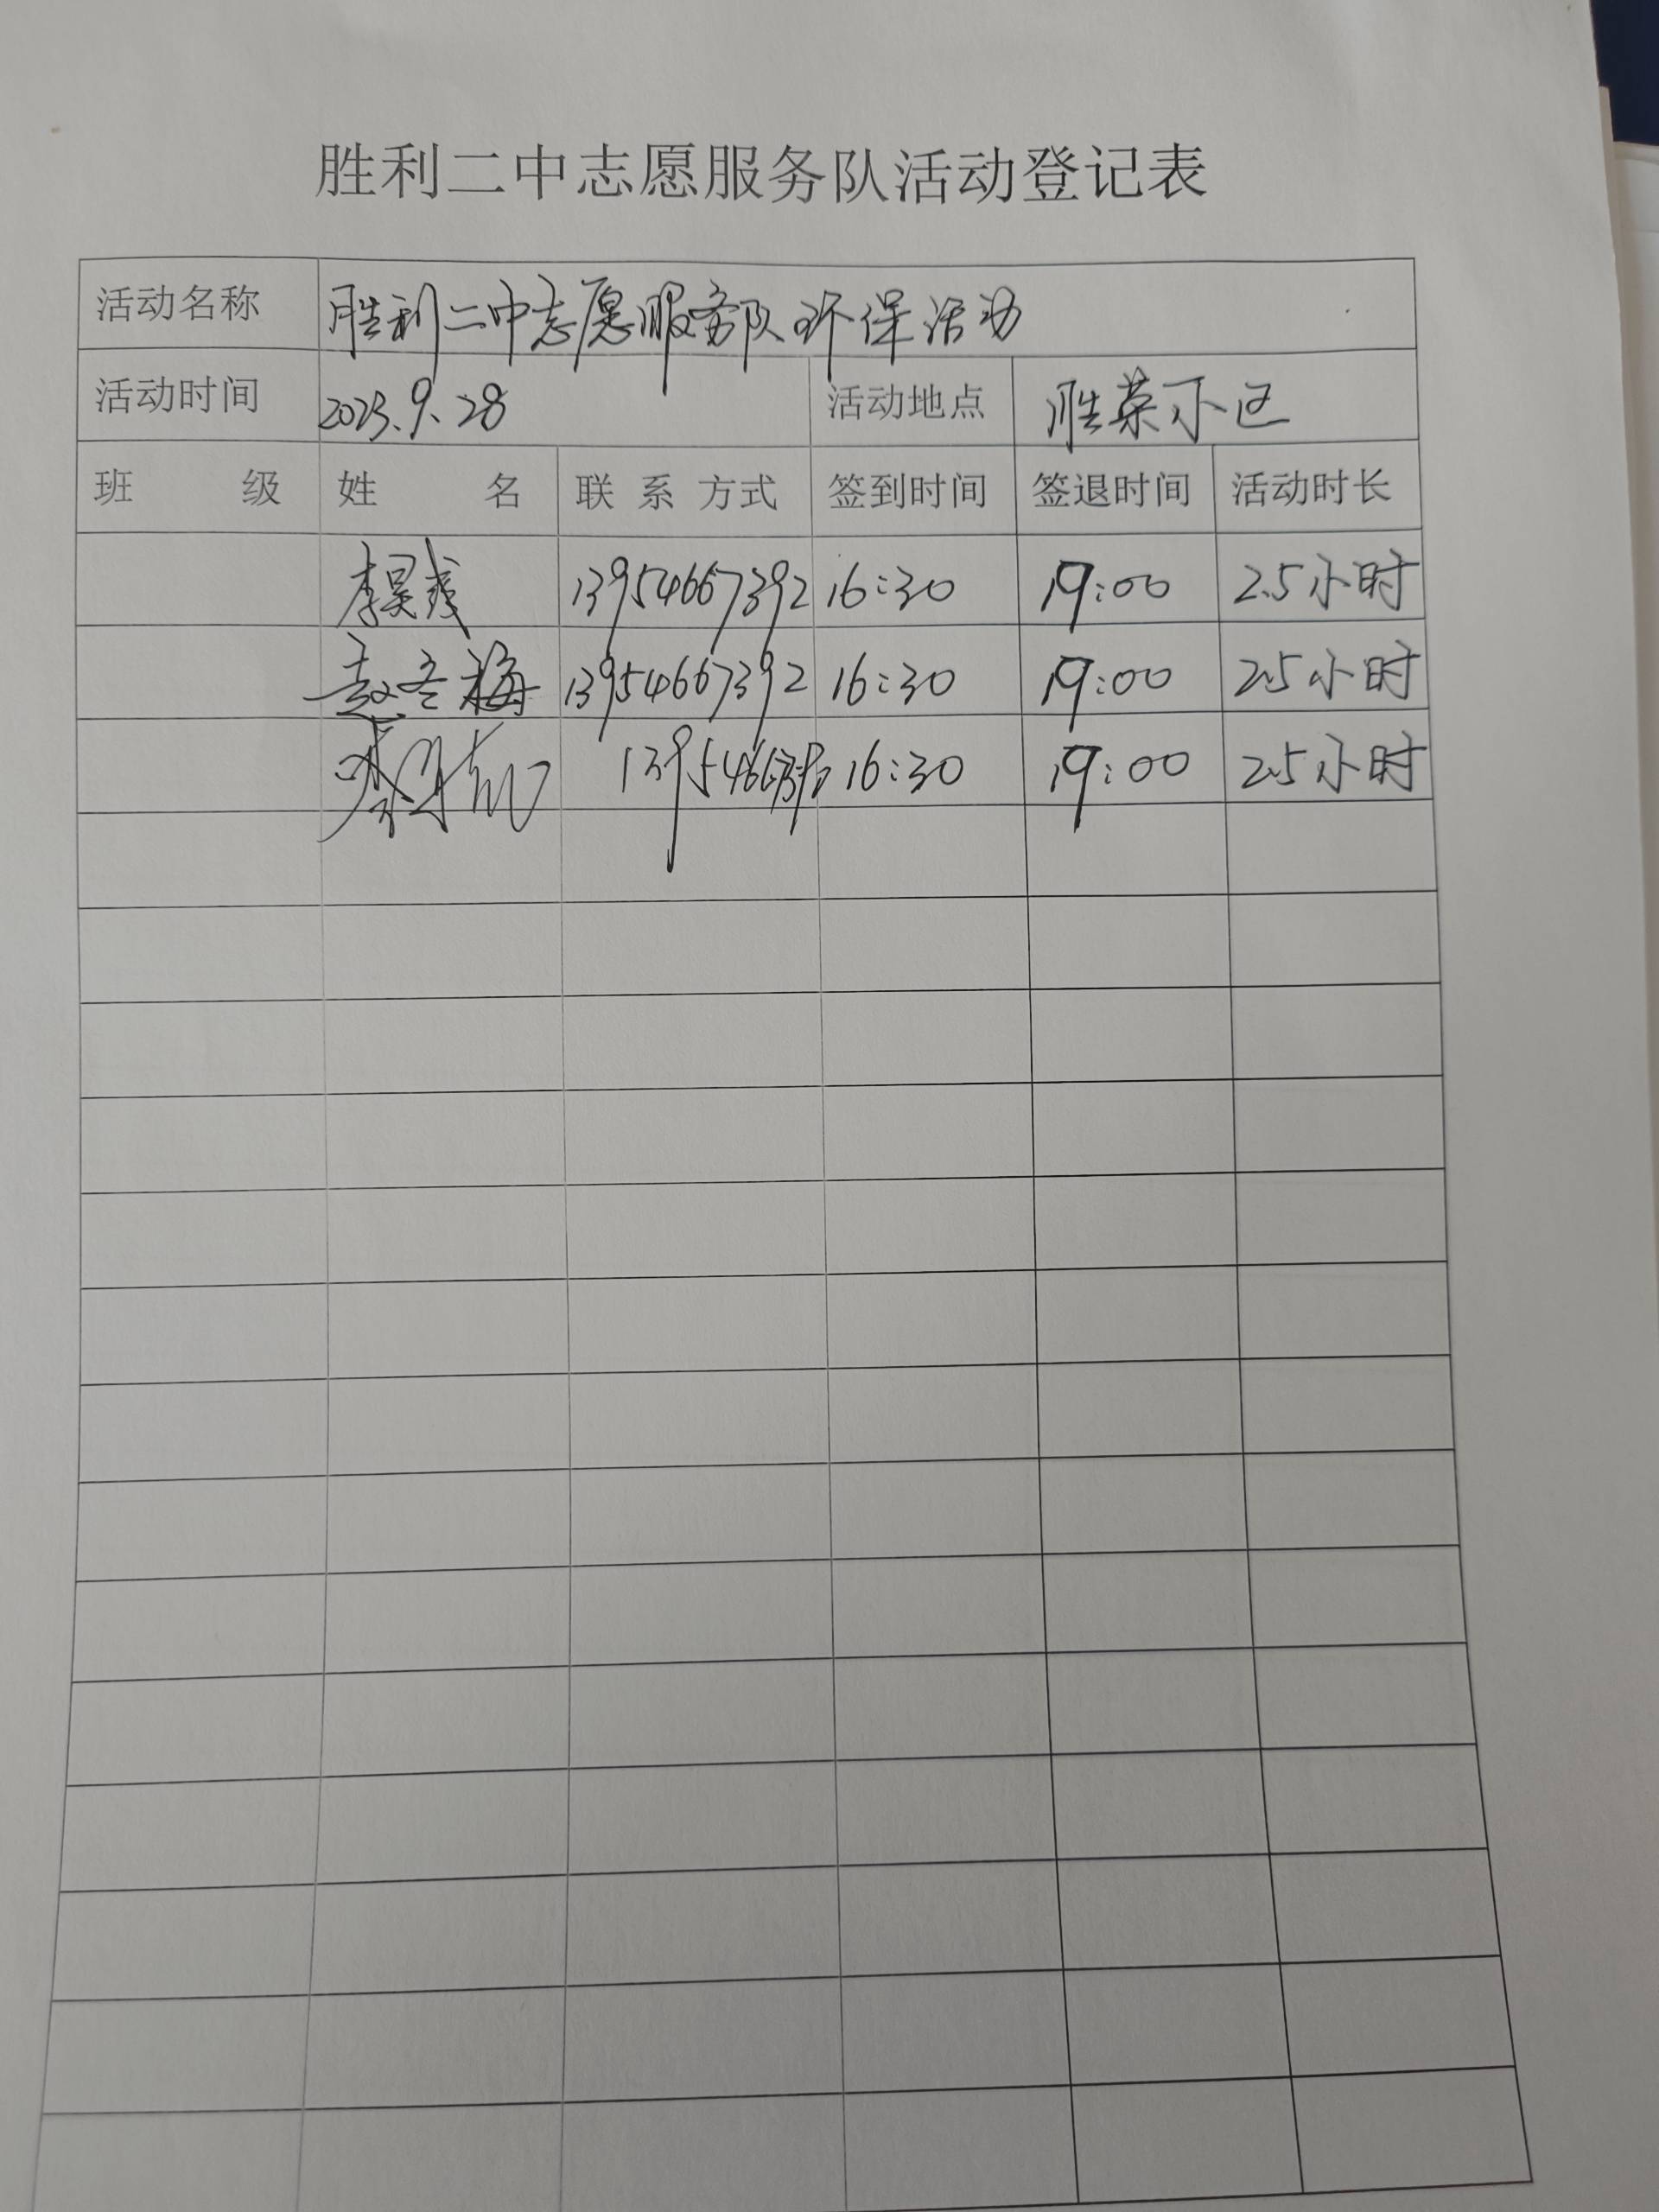 胜利二中志愿服务队活动登记表
活动名称 胜利二中志愿服务队环保活动
活动时间 2023.9.28 活动地点 胜荣小区
班级 姓名 联系方式 签到时间 签退时间 活动时长
李昊 13954667392 16:30 19:00 2.5小时
赵冬梅 13954667392 16:30 19:00 2.5小时
16:30 19:00 2.5小时